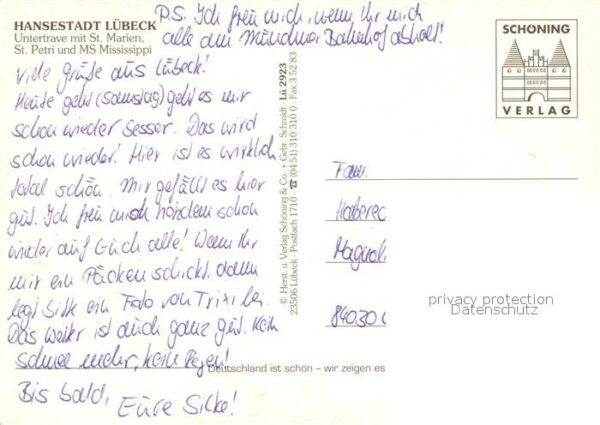 HANSESTADT LÜBECK
Untertrave mit St. Marien,
St. Petri und MS Mississippi
P.S. Ich freu mich, wenn Ihr mich
alle am Münchner Bahnhof abholt!
viele Grüße aus Lübeck!
Heute geht (Samstag) geht es mir
schon wieder besser. Das wird
schon wieder! Hier ist es wirklich
total schön. Mir gefällt es hier
gut. Ich freu mich trotzdem schon
wieder auf Euch alle! Wenn Ihr
mir ein Päcken schickt, dann
legt bitte ein Foto von Trixi bei.
Das Wetter ist auch ganz gut. Kein
Schnee mehr, kein Regen!
Bis bald,
Eure Silke!
© Herst. u. Verlag Schöning & Co. + Gebr. Schmidt Lü 2923
23506 Lübeck · Postfach 1710 ☎ (04 51) 310 310 0 · Fax 3 52 83
SCHÖNING
VERLAG
Fam.
Haberec
Magnol
84030
privacy protection
Datenschutz
Deutschland ist schön – wir zeigen es